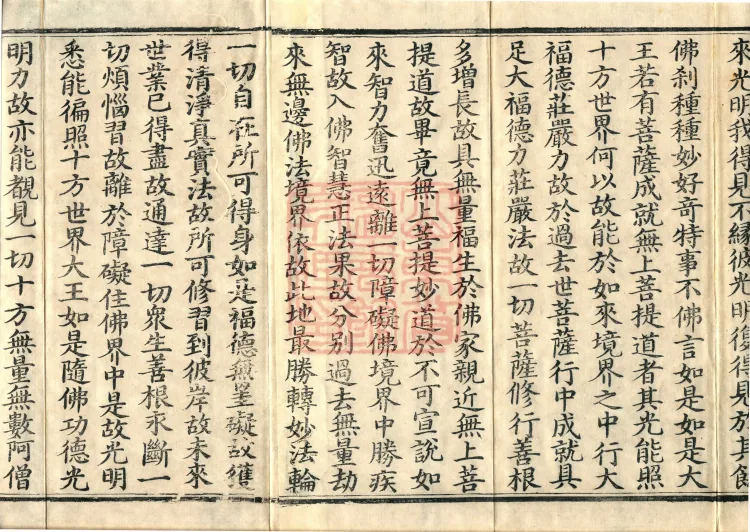 來光明我得見不緣彼光明復得見於其餘
佛刹種種妙好奇特事不佛言如是如是大
王若有菩薩成就無上菩提道者其光能照
十方世界何以故能於如來境界之中行大
福德莊嚴力故於過去世菩薩行中成就具
足大福德力莊嚴法故一切菩薩修行善根
多增長故具無量福生於佛家親近無上菩
提道故畢竟無上菩提妙道於不可宣說如
來智力奮迅遠離一切障礙佛境界中勝疾
智故入佛智慧正法果故分别過去無量劫
來無邊佛法境界依故此地最勝轉妙法輪
一切自在所可得身如是福德無罣礙故獲
得清淨真實法故所可修習到彼岸故未來
世業已得盡故通達一切衆生善根永斷一
切煩惱習故離於障礙住佛界中是故光明
悉能徧照十方世界大王如是隨佛功德光
明力故亦能覩見一切十方無量無數阿僧